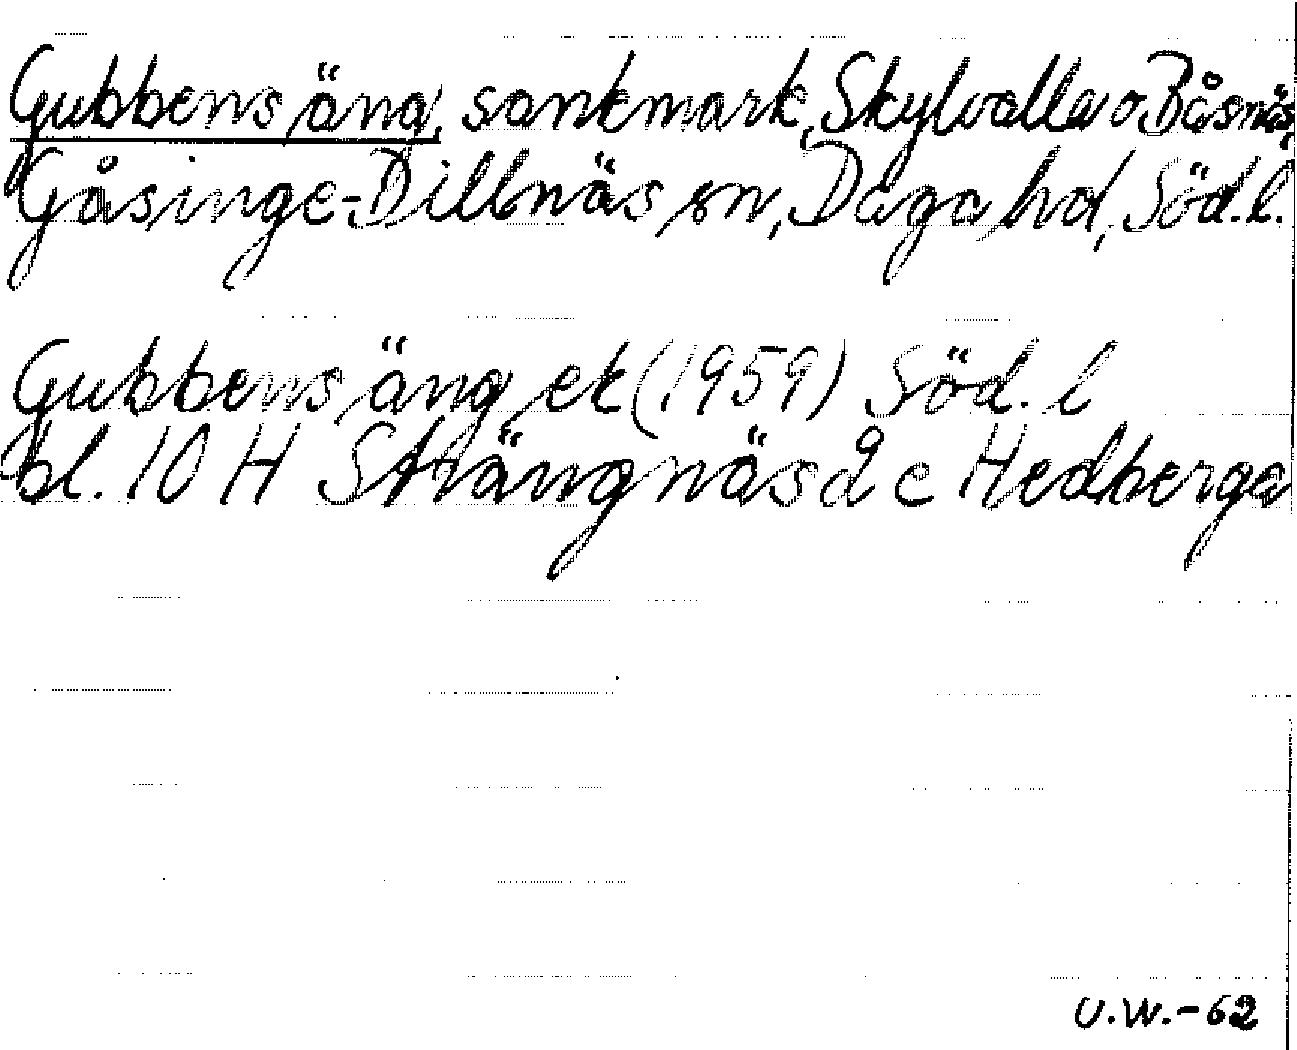 Gubbens äng, sankmark, Skylvalla o Båsnäs,
Gåsinge-Dillnäs sn, Daga hd, Söd.l.
Gubbens äng ek (1959) Söd. l
bl. 10 H Strängnäs 2 c Hedberga
U.W.-62